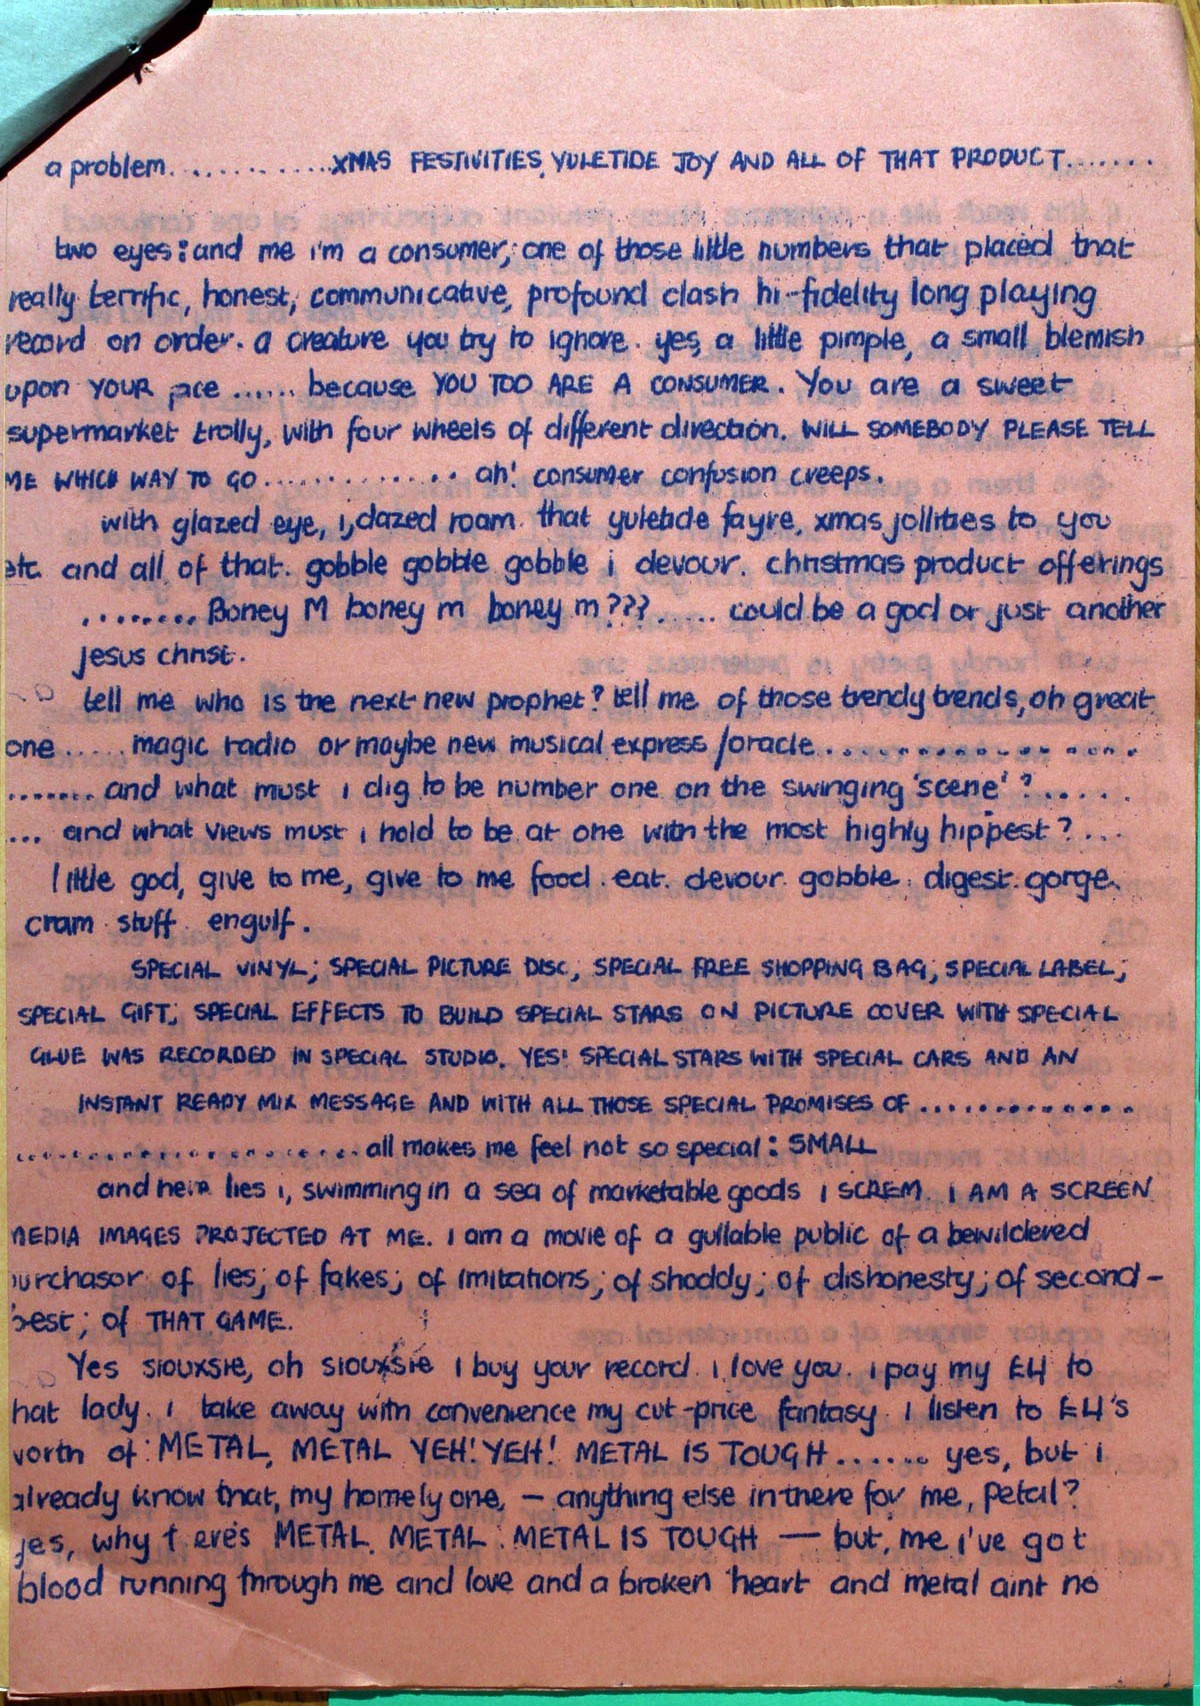 a problem.............XMAS FESTIVITIES, YULETIDE JOY AND ALL OF THAT PRODUCT.......
two eyes: and me i'm a consumer; one of those little numbers that placed that
really terrific, honest, communicative, profound clash hi-fidelity long playing
record on order. a creature you try to ignore. yes, a little pimple, a small blemish
upon YOUR face ...... because YOU TOO ARE A CONSUMER. You are a sweet
supermarket trolly, with four wheels of different direction. WILL SOMEBODY PLEASE TELL
ME WHICH WAY TO GO............. ah! consumer confusion creeps.
with glazed eye, i, dazed roam. that yuletide fayre, xmas jollities to you
etc and all of that. gobble gobble gobble i devour. christmas product offerings
........Boney M boney m boney m???...... could be a god or just another
jesus christ.
tell me who is the next new prophet? tell me of those trendy trends, oh great
one ..... magic radio or maybe new musical express/oracle...................
....... and what must i dig to be number one on the swinging 'scene'?.....
... and what views must i hold to be at one with the most highly hippest?...
little god, give to me, give to me food. eat. devour. gobble. digest. gorge.
cram stuff engulf.
SPECIAL VINYL; SPECIAL PICTURE DISC; SPECIAL FREE SHOPPING BAG; SPECIAL LABEL;
SPECIAL GIFT; SPECIAL EFFECTS TO BUILD SPECIAL STARS ON PICTURE COVER WITH SPECIAL
GLUE WAS RECORDED IN SPECIAL STUDIO. YES! SPECIAL STARS WITH SPECIAL CARS AND AN
INSTANT READY MIX MESSAGE AND WITH ALL THOSE SPECIAL PROMISES OF ..............
......................all makes me feel not so special: SMALL
and here lies i, swimming in a sea of marketable goods I SCREM. I AM A SCREEN.
MEDIA IMAGES PROJECTED AT ME. I am a movie of a gullable public of a bewildered
purchasor of lies; of fakes; of imitations; of shoddy; of dishonesty; of second-
best; of THAT GAME.
Yes siouxsie, oh siouxsie I buy your record. i love you. i pay my £4 to
hat lady. i take away with convenience my cut-price fantasy. I listen to £4's
worth of: METAL, METAL YEH! YEH! METAL IS TOUGH ...... yes, but i
already know that, my homely one, — anything else in there for me, petal?
yes, why t ere's METAL. METAL. METAL IS TOUGH — but, me i've got
blood running through me and love and a broken heart and metal aint no